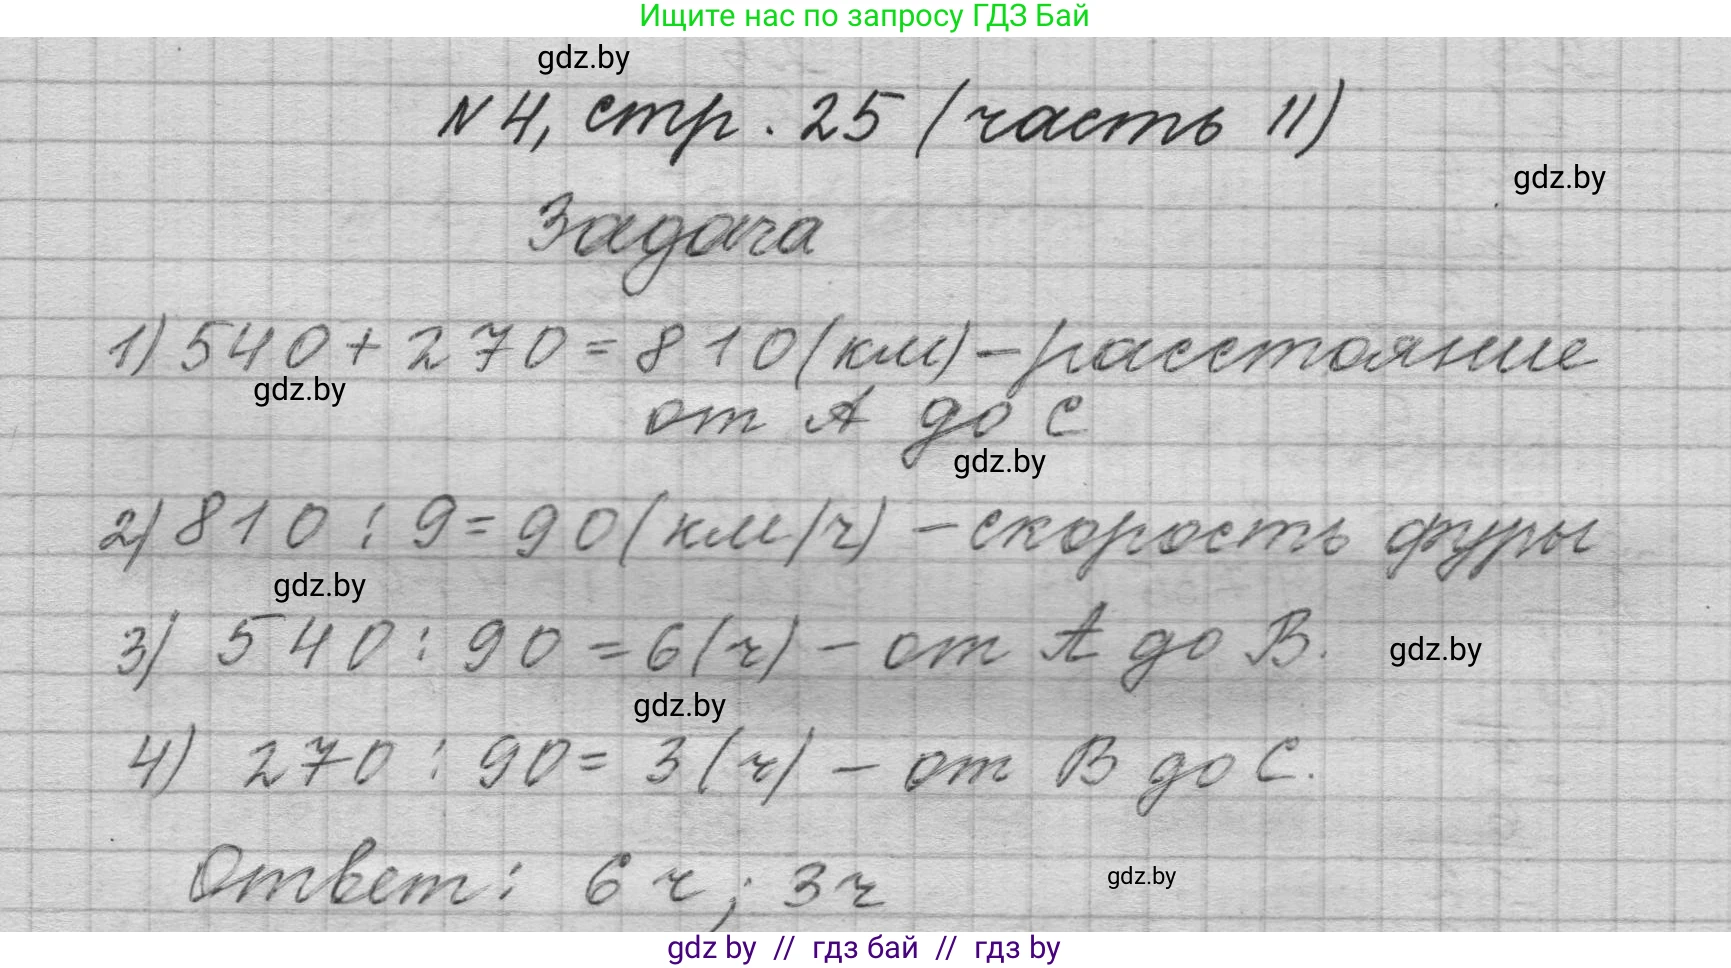 Ищите нас по запросу ГДЗ Бай
gdz.by
N 4, стр. 25 (часть II)
gdz.by
Задача
1) 540 + 270 = 810 (км) - расстояние
gdz.by
от А до С
gdz.by
2) 810 : 9 = 90 (км/ч) - скорость фуры
gdz.by
3) 540 : 90 = 6 (ч) - от А до В.
gdz.by
gdz.by
4) 270 : 90 = 3 (ч) - от В до С.
Ответ: 6 ч; 3 ч
gdz.by
gdz by // гдз бай // гдз by